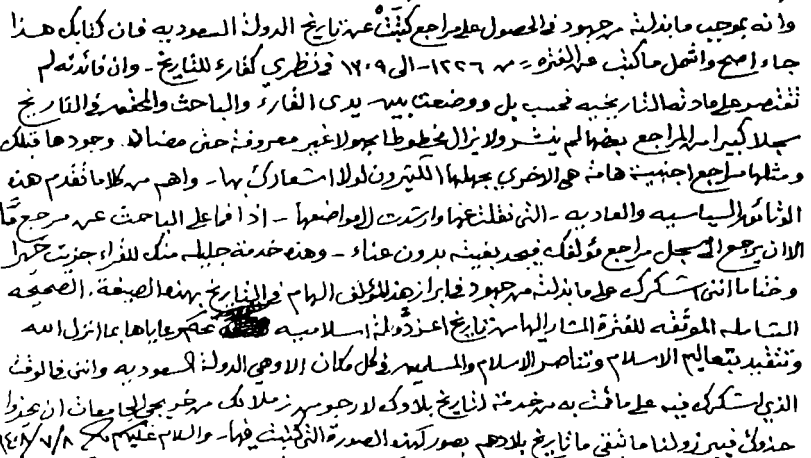 وانه بموجب ما بذلته من جهود في الحصول على مراجع كتبت عن تاريخ الدولة السعودية فان كتابك هذا
جاء اصح واشمل ما كتب عن الفترة من ١٢٢٦ - الى ١٣٠٩ في نظري كقارء للتاريخ - وان فائدته لم
تقتصر على مادته التاريخيه فحسب بل ووضعت بين يدي القارء والباحث والمختص في التاريخ
سجلا كبيرا من المراجع بعضها لم ينشر ولا يزال مخطوطا مجهولا غير معروفة حتى مضان وجودها قبلك
ومثلها مراجع اجنبية هامة هي الاخرى يجهلها الكثيرون لولا اشعارك بها - واهم من كلاما تقدم هذه
الوثائق السياسيه والعاديه - التي نقلت عنها وارشدت الى مواضعها - اذا فما على الباحث عن مرجع ما
الا ان يرجع الى سجل مراجع مؤلفك فيجد بغيته بدون عناء - وهذه خدمة جليله منك للقراء جزيت خيرا
وختاما انني اشكرك على ما بذلته من جهود في ابراز هذا المؤلف الهام في التاريخ بهذه الصيغة . الصحيحه
الشامله الموثقه للفترة المشار اليها من تاريخ اعز دولة اسلاميه تحكم رعاياها بما انزل الله
وتتقيد بتعاليم الاسلام وتناصر الاسلام والمسلمين في كل مكان الا وهي الدولة السعوديه وانني في الوقت
الذي اشكرك فيه على ما قمت به من خدمة لتاريخ بلادك لارجو من زملائك من خريجي الجامعات ان يحذوا
حذوك فيبرزوا لنا ما تبقى من تاريخ بلادهم بصور كهذه الصورة التي كتبت فيها - والسلام عليكم ١٤٠٨/٧/٨